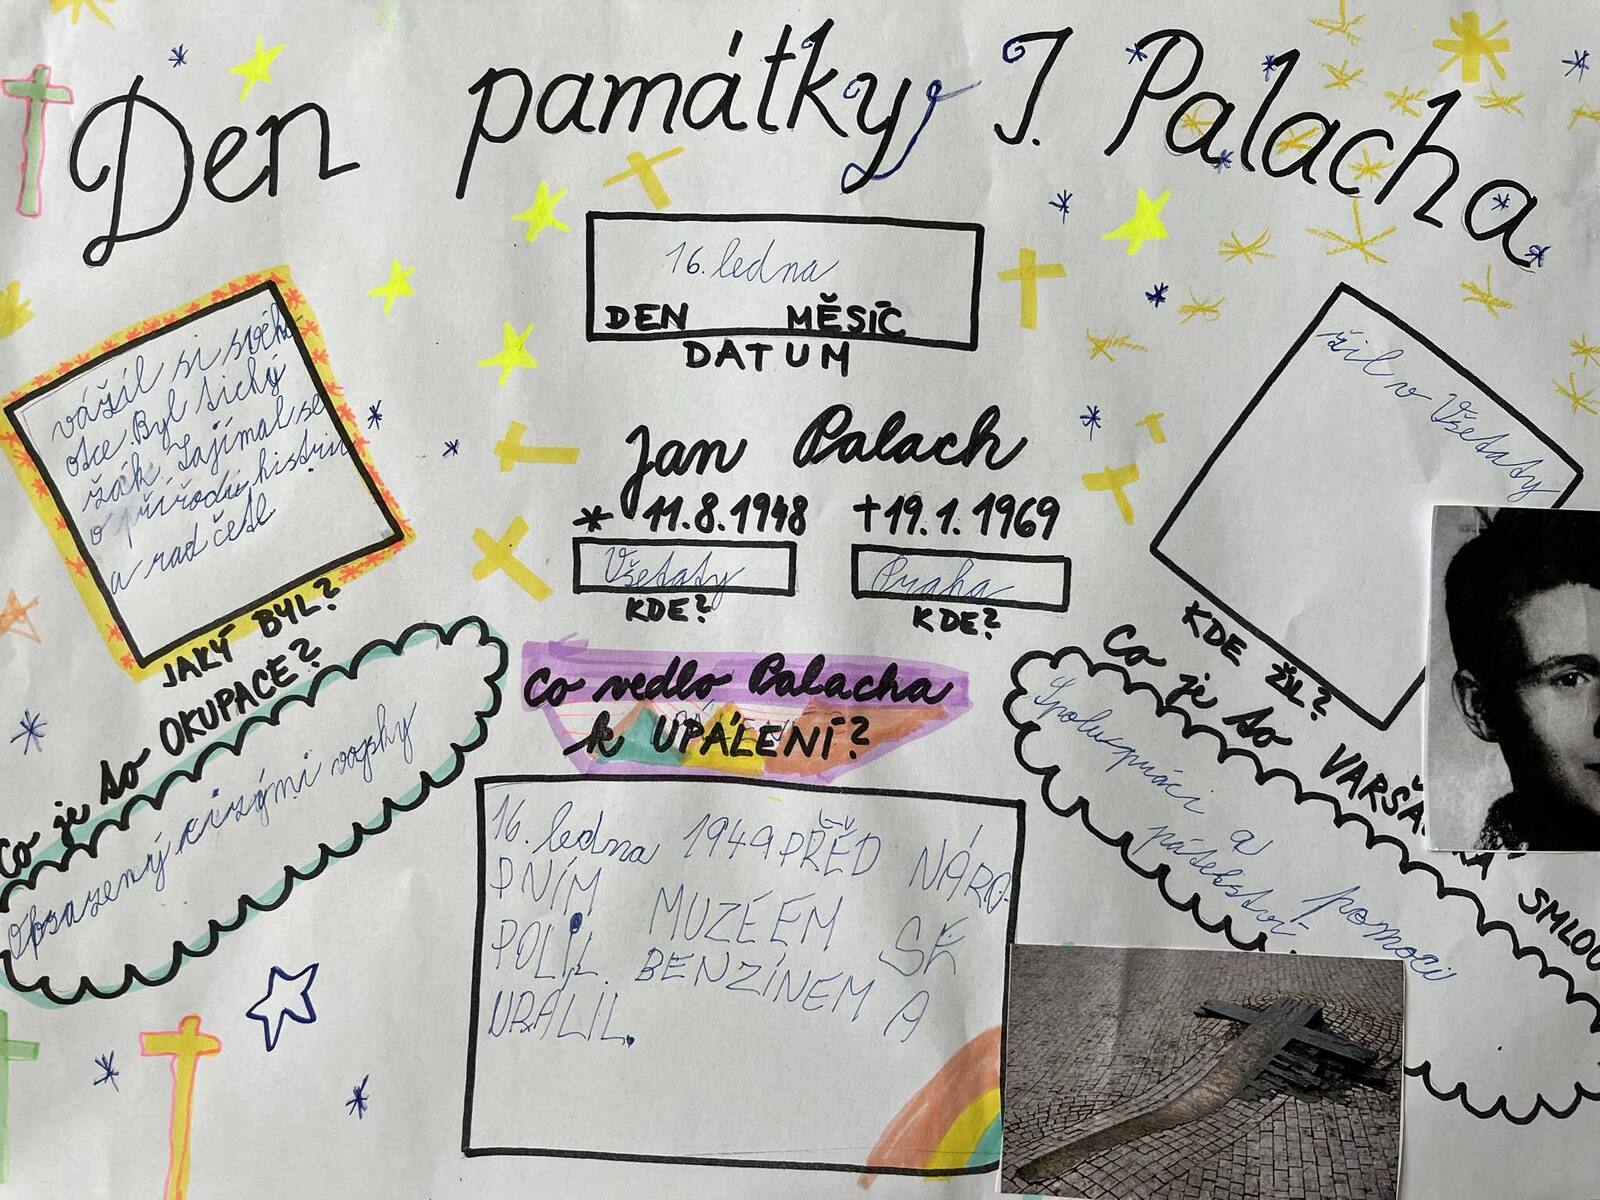 Den památky J. Palacha
16. ledna
DEN MĚSÍC
DATUM
vážil si svého
otce. Byl tichý
žák. Zajímal se
o přírodu, histrii
a rad četl
JAKÝ BYL?
Jan Palach
* 11.8.1948 †19.1.1969
Všetaty
KDE?
Praha
KDE?
žil v Všetaty
KDE ŽIL?
Co je to OKUPACE?
Obsazený cizými vojsky
Co vedlo Palacha
k UPÁLENÍ?
16. ledna 1949 PŘED NÁRO-
DNÍM MUZEEM SE
POLIL BENZÍNEM A
Co je to VARŠA
SMLOU
Spolupráci
a pomoci